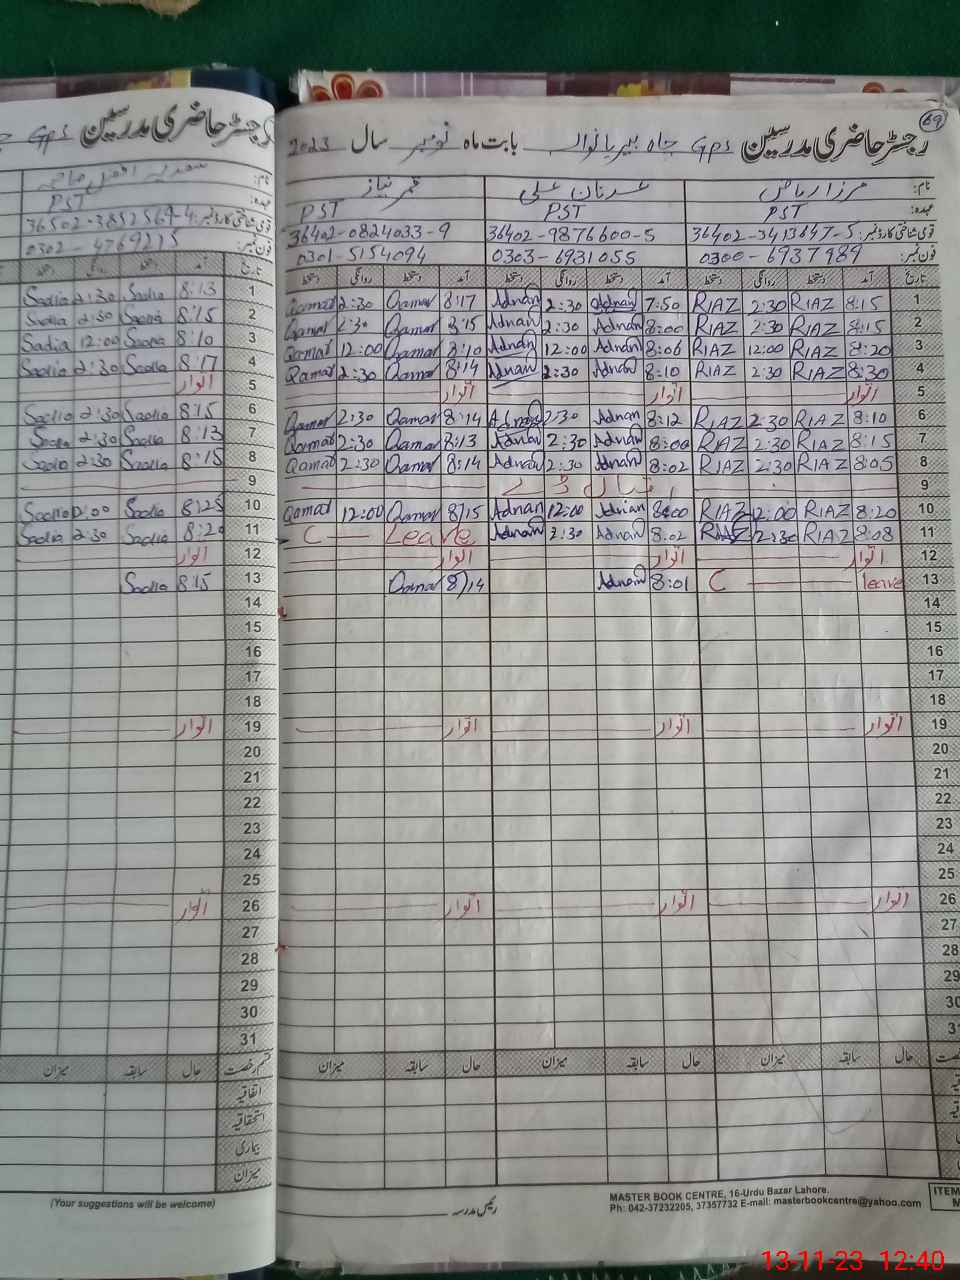 رجسٹر حاضری مدرسین GPS
PST
36502-3852569-4 قومی شناختی کارڈ نمبر:
0302-4769215 فون نمبر:
دستخط روانگی دستخط آمد تاریخ
Sadia 2:30 Sadia 8:13 1
Sadia 2:30 Sadia 8:15 2
Sadia 12:00 Sadia 8:10 3
Sadia 2:30 Sadia 8:17 4
اتوار 5
Sadia 2:30 Sadia 8:15 6
Sadia 2:30 Sadia 8:13 7
Sadia 2:30 Sadia 8:15 8
9
Sadia Sadia 8:25 10
Sadia 2:30 Sadia 8:20 11
اتوار 12
Sadia 8:15 13
14
15
16
17
18
اتوار 19
20
21
22
23
24
25
اتوار 26
27
28
29
30
31
میزان سابقہ حال قسم رخصت
اتفاقیہ
استحقاقیہ
بیماری
میزان
(Your suggestions will be welcome)
69
رجسٹر حاضری مدرسین GPS چاہ بابت ماہ نومبر سال 2023
نام: قمر نیاز عدنان علی مرزا ریاض
عہدہ: PST PST PST
قومی شناختی کارڈ نمبر: 36402-0824033-9 36402-9876600-5 36402-3413647-5
فون نمبر: 0301-5154094 0303-6931055 0300-6937989
دستخط روانگی دستخط آمد دستخط روانگی دستخط آمد دستخط روانگی دستخط آمد تاریخ
Qamar 2:30 Qamar 8:17 Adnan 2:30 Adnan 7:50 RIAZ 2:30 RIAZ 8:15 1
Qamar 2:30 Qamar 8:15 Adnan 2:30 Adnan 8:00 RIAZ 2:30 RIAZ 8:15 2
Qamar 12:00 Qamar 8:10 Adnan 12:00 Adnan 8:06 RIAZ 12:00 RIAZ 8:20 3
Qamar 2:30 Qamar 8:14 Adnan 2:30 Adnan 8:10 RIAZ 2:30 RIAZ 8:30 4
اتوار اتوار اتوار 5
Qamar 2:30 Qamar 8:14 Adnan 2:30 Adnan 8:12 RIAZ 2:30 RIAZ 8:10 6
Qamar 2:30 Qamar 8:13 Adnan 2:30 Adnan 8:00 RIAZ 2:30 RIAZ 8:15 7
Qamar 2:30 Qamar 8:14 Adnan 2:30 Adnan 8:02 RIAZ 2:30 RIAZ 8:05 8
اقبال ڈے 9
Qamar 12:00 Qamar 8/15 Adnan 12:00 Adnan 8:00 RIAZ 12:00 RIAZ 8:20 10
C — Leave Adnan 2:30 Adnan 8:02 RIAZ 2:30 RIAZ 8:08 11
اتوار اتوار اتوار 12
Qamar 8/14 Adnan 8:01 C — leave 13
14
15
16
17
18
اتوار اتوار اتوار 19
20
21
22
23
24
25
اتوار اتوار اتوار 26
27
28
29
30
31
میزان سابقہ حال میزان سابقہ حال میزان سابقہ حال
رئیس مدرسہ
MASTER BOOK CENTRE, 16-Urdu Bazar Lahore.
Ph: 042-37232205, 37357732 E-mail: masterbookcentre@yahoo.com
ITEM
M
13-11-23 12:40